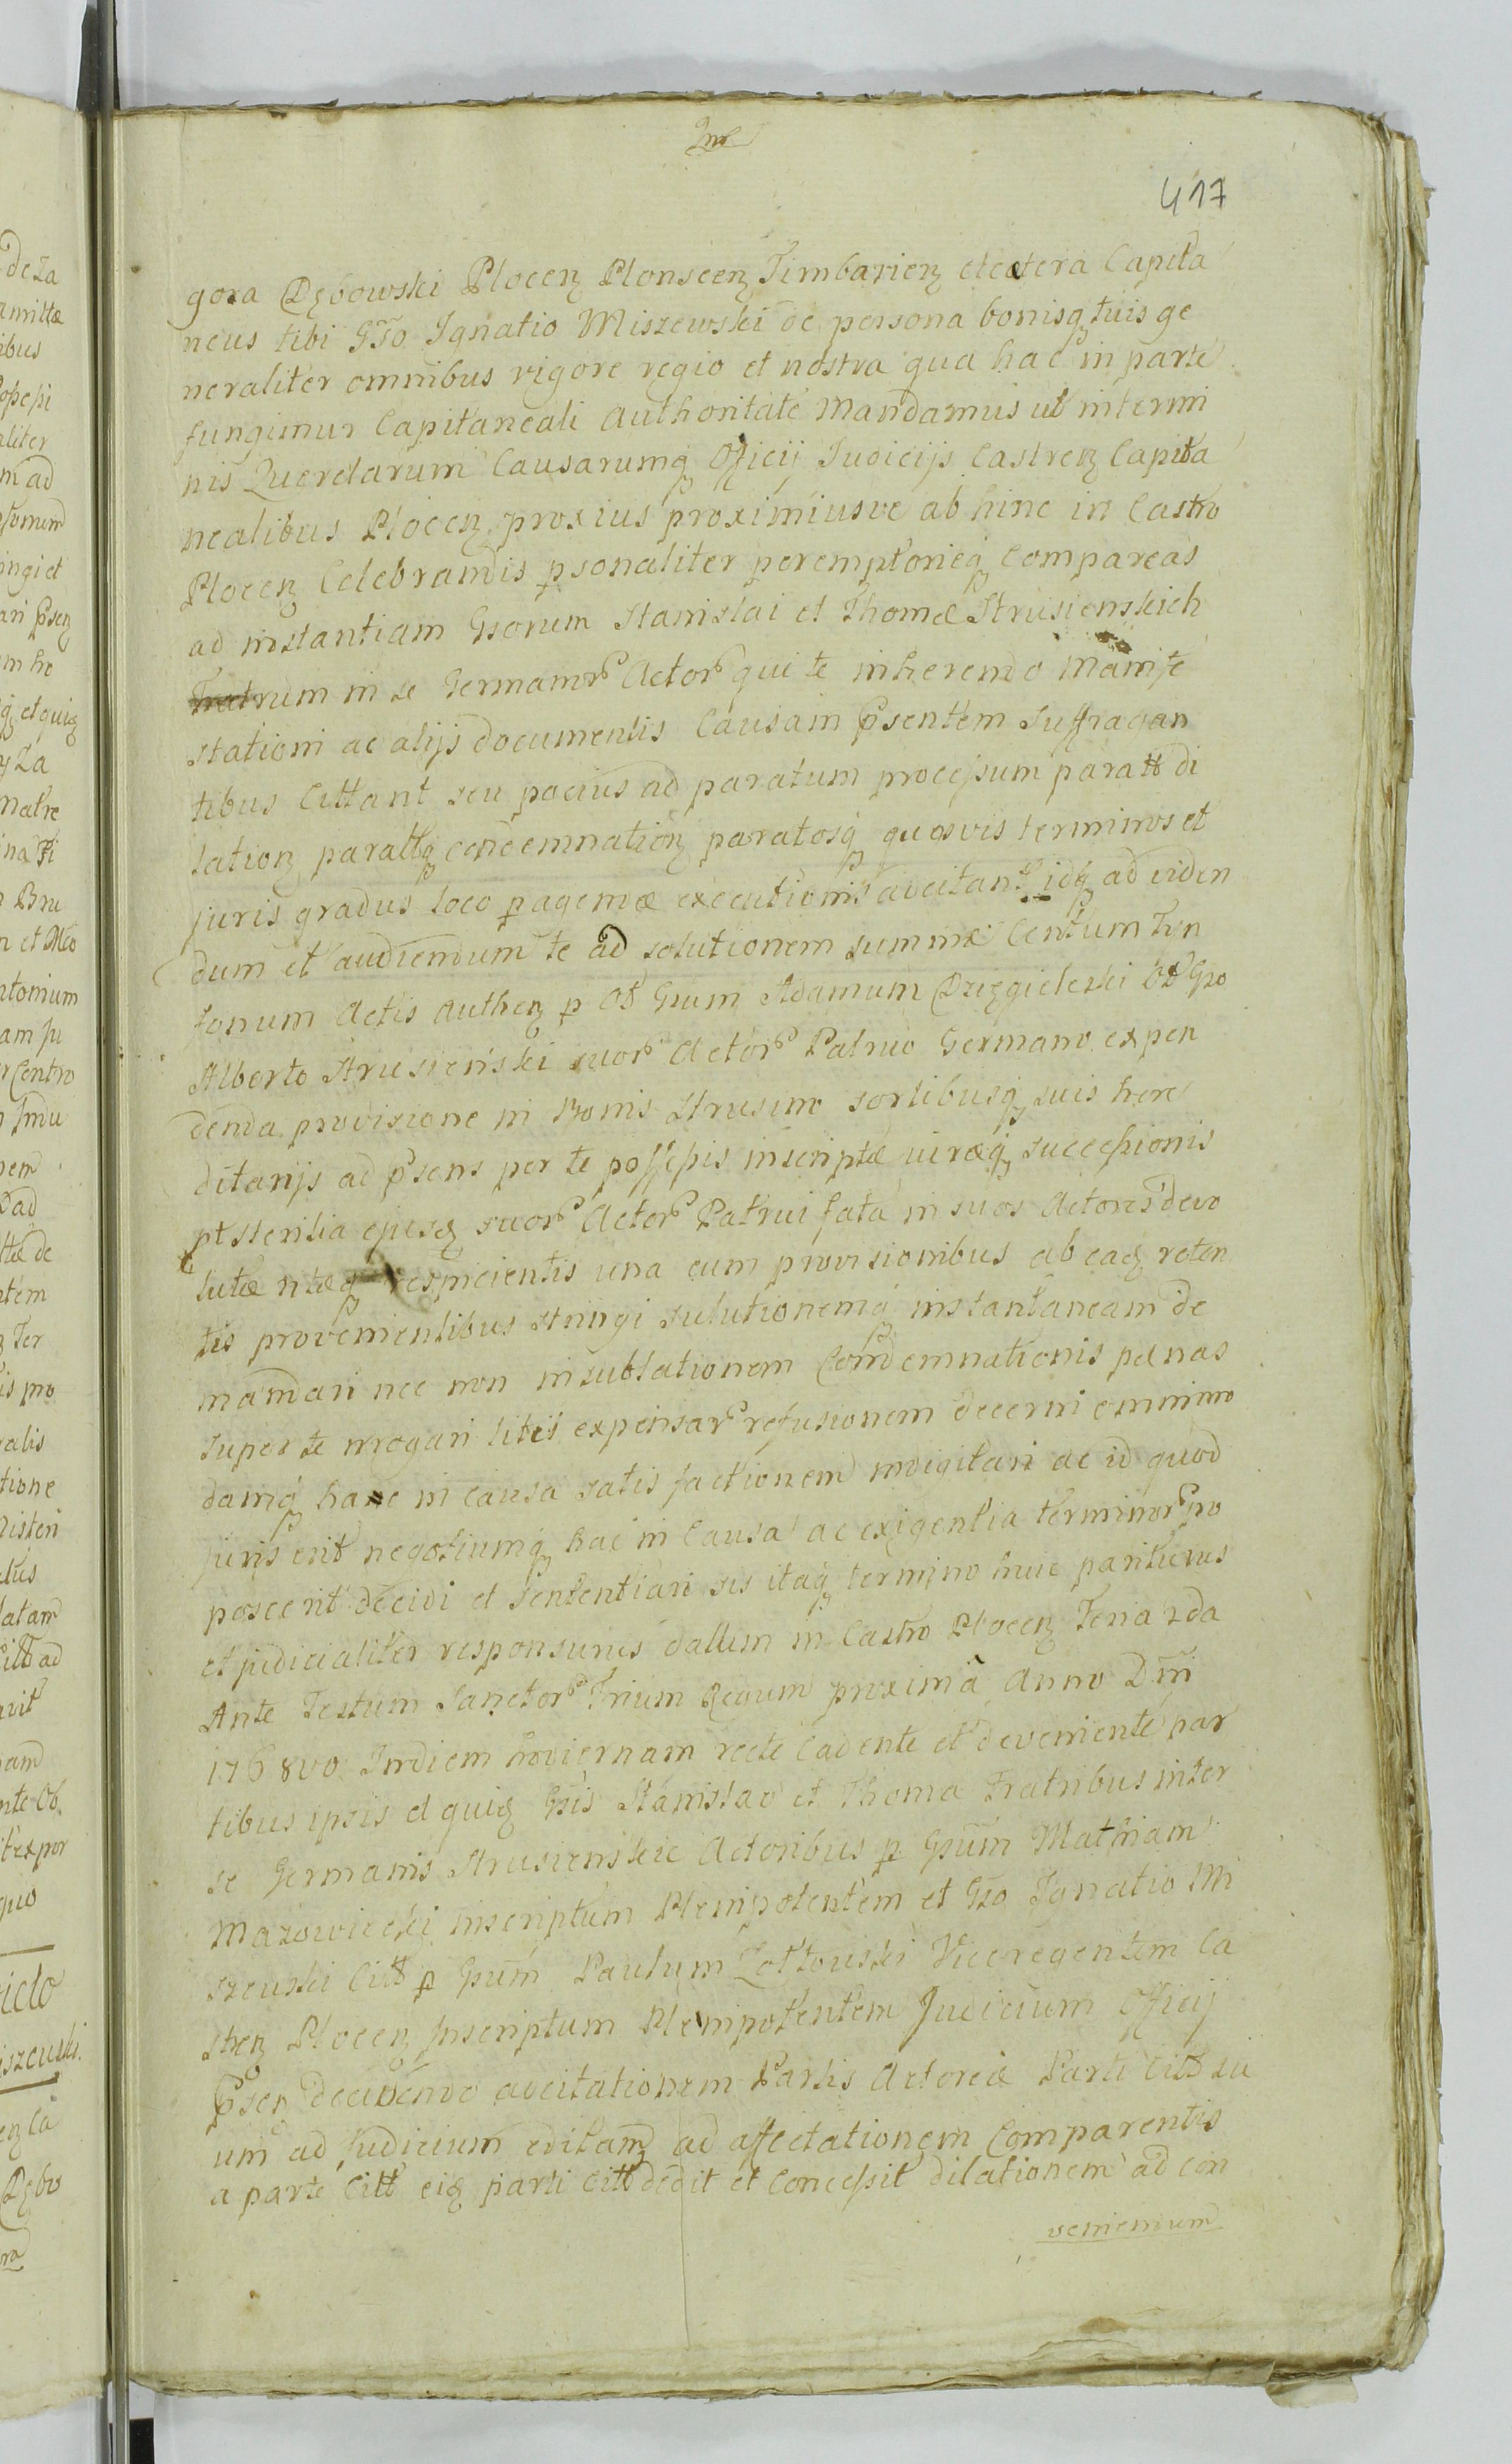 417
gora Dębowski Plocen Plonscen Zimbarien etcetera Capita
neus tibi Gso Ignatio Miszewski de persona bonisq tuis ge
neraliter omnibus vigore regio et nostra qua hac in parte
fungimur Capitaneali Authoritate Mandamus ut in termi
nis Querelarum Causarumq Officij Judicijs Castren Capita
nealibus Plocen proxius proximiusve ab hinc in Castro
Plocen Celebrandis psonaliter peremptorieq Compareas
ad instantiam Gsorum Stanislai et Thomæ Strusienskich
Fratrum in se Germanor Actor qui te inherendo Manife
stationi ac alijs documentis Causam psentem Suffragan
tibus Cittant seu pocius ad paratum processum paratt di
lation parattq condemnation paratosq quosvis terminos et
juris gradus loco pagendæ executionis adcitant idq ad viden
dum et audiendum te ad solutionem summæ Centum Tyn
fonum Actis Authen p Ol Gsum Adamum Dzięgieleski Ol Gso
Alberto Strusieński suor Actor Patruo Germano expen
denda provisione in Bonis Strusino sortibusq suis here
ditarijs ad psens per te possessis inscriptæ juræq successionis
pt sterilia ejusq suor Actor Patrui fata in suos Actores devo
lutæ ritæq respicientis una cum provisionibus ab eaq reten
tis provenientibus stringi sulutionemq instantaneam de
mandari nec non in sublationem Condemnationis pænas
super te irrogari litis expensar refusionem decerni omnimo
damq hanc in causa satis factionem indigitari ac id quod
juris erit negotiumq hac in Causa ac exigentia terminor po
poscerit decidi et sententiari sis itaq termino huic pariturus
et judicialiter responsurus dattum in Castro Plocen Feria 2da
Ante Festum Sanctor Trium Regum proxima Anno Dni
1768vo In diem hodiernam recte cadente et deveniente par
tibus ipsis et quiq Gsis Stanislao et Thoma Fratribus inter
se Germanis Strusienskie Actoribus p Gsum Mathiam
Mazowiecki inscriptum Plenipotentem et Gso Ignatio Mi
szewski Citt p Gsum Paulum Zołtowski Viceregentem Ca
stren Plocen Inscriptum Plenipotentem Judicium Officij
psen decidendo adcitationem Partis Actoreæ Parti Citt su
um ad Judicium editam ad affectationem Comparentis
a parte Citt eiq parti Citt dedit et Concessit dilationem ad con
veniendum